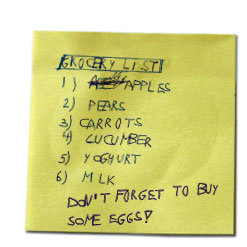 GROCERY LIST
1) APPLES
2) PEARS
3) CARROTS
4) CUCUMBER
5) YOGHURT
6) MLK
DON'T FORGET TO BUY
SOME EGGS!